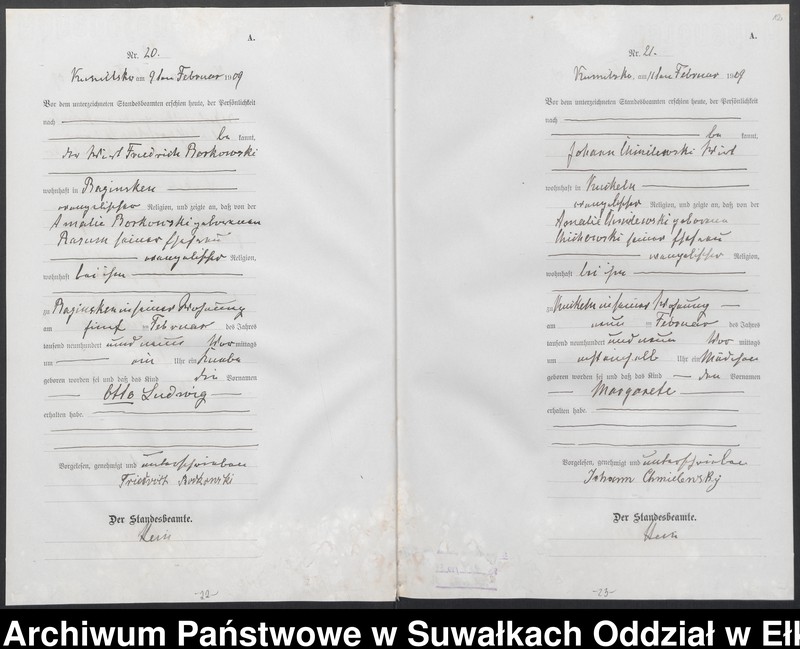 A.
Nr. 20.
am 9ten Februar 1909
Vor dem unterzeichneten Standesbeamten erschien heute, der Persönlichkeit
nach
be kannt,
der Wirt Friedrich Borkowski
wohnhaft in Raginsken
evangelischer Religion, und zeigte an, daß von der
Amalie Borkowski geborenen
seiner Ehefrau
evangelischer Religion,
wohnhaft bei ihm
zu Raginsken in seiner Wohnung
am fünf ten Februar des Jahres
tausend neunhundert und neun Vor mittags
um ein Uhr ein Knabe
geboren worden sei und daß das Kind die Vornamen
Otto Ludwig
erhalten habe.
Vorgelesen, genehmigt und unterschrieben
Friedrich Borkowski
Der Standesbeamte.
-22-
A.
Nr. 21.
am 11ten Februar 1909
Vor dem unterzeichneten Standesbeamten erschien heute, der Persönlichkeit
nach
be kannt,
Johann Chmilewski Wirt
wohnhaft in
evangelischer Religion, und zeigte an, daß von der
Amalie Chmilewski geborene
seiner Ehefrau
evangelischer Religion,
wohnhaft bei ihm
zu in seiner Wohnung
am neun ten Februar des Jahres
tausend neunhundert und neun Vor mittags
um achteinhalb Uhr ein Mädchen
geboren worden sei und daß das Kind den Vornamen
Margarete
erhalten habe.
Vorgelesen, genehmigt und unterschrieben
Johann Chmielewsky
Der Standesbeamte.
-23-
Archiwum Państwowe w Suwałkach Oddział w Ełk